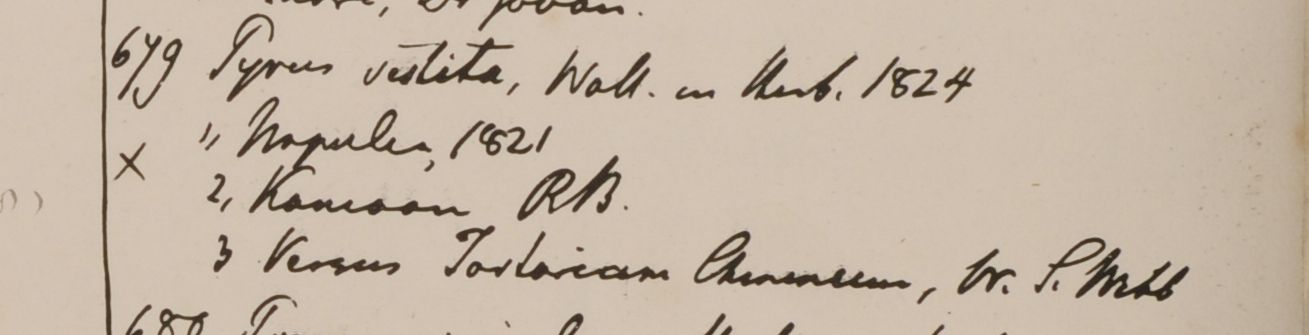 679 Pyrus vestita, Wall. in Herb. 1824
1, Napulia, 1821
x
2, Kamaon RB.
3 Versus Tartariam Chinensem, W. S. Webb
680